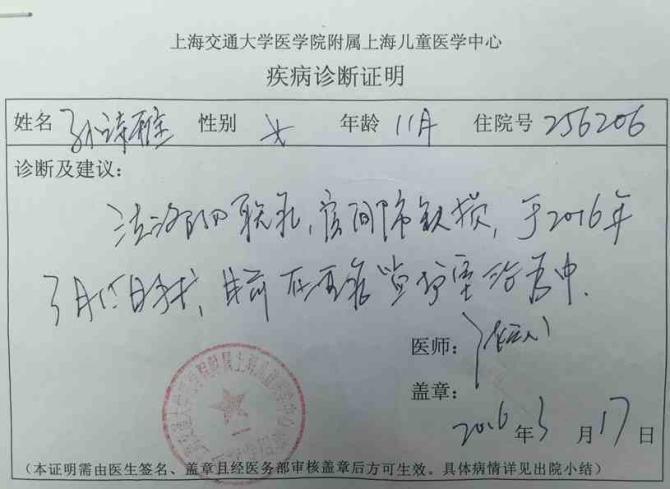 上海交通大学医学院附属上海儿童医学中心
疾病诊断证明
姓名 孙诗雅 性别 女 年龄 11月 住院号 256206
诊断及建议：
法洛氏四联症，房间隔缺损，于2016年
3月15日手术，目前在重症监护室治疗中．
医师：
盖章：
2016年3月17日
（本证明需由医生签名、盖章且经医务部审核盖章后方可生效。具体病情详见出院小结）